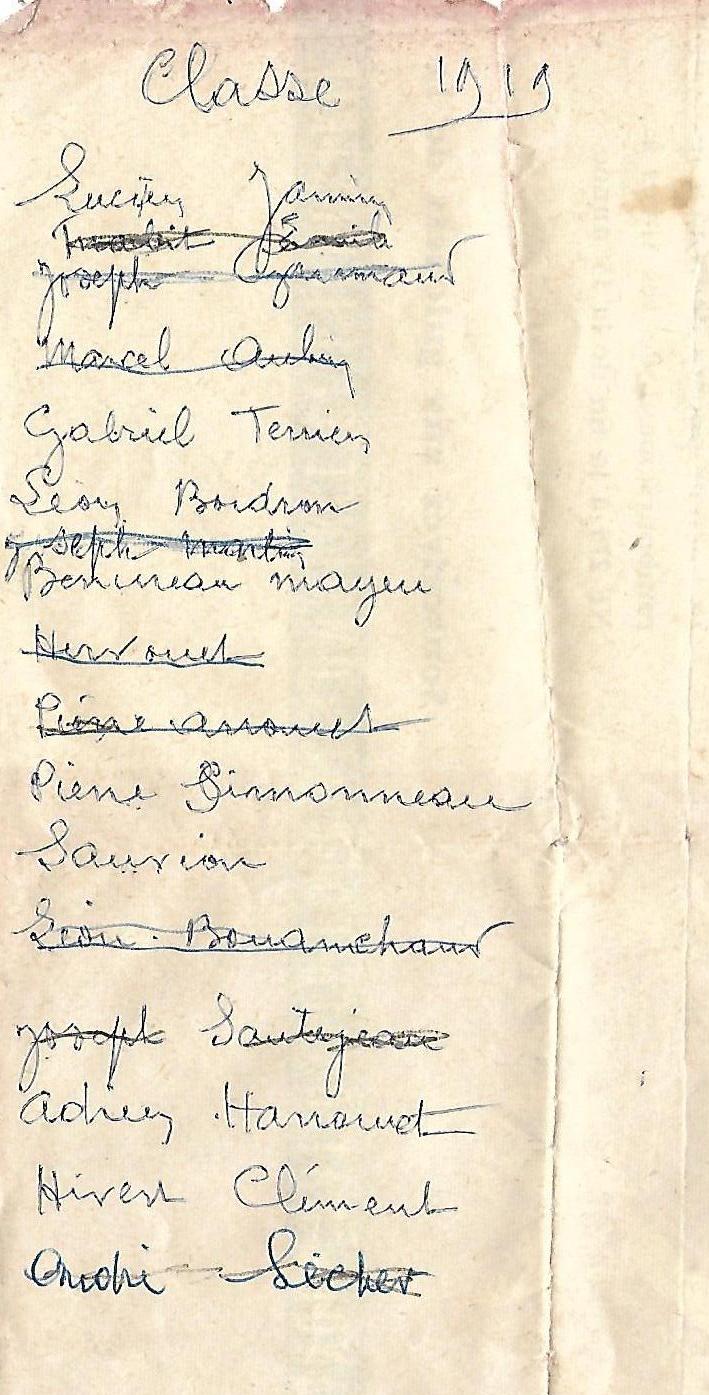 Classe 1919
Lucien Janin
Joseph Grimaud
Marcel Aubin
Gabriel Terrien
Léon Boidron
Joseph Martin
Bonneau mayeu
Hervouet
Pierre arrouet
Pierre Simonneau
Sauvion
Léon Bouanchaud
Joseph Sautejeau
Adrien Harrouet
Hivert Clément
André Sécher